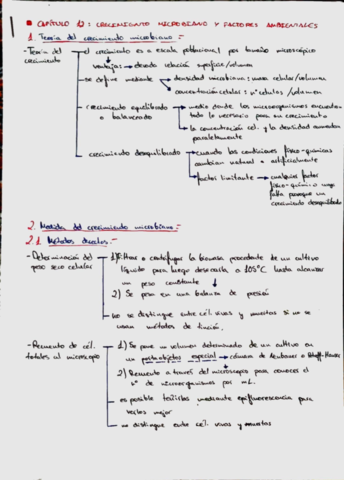 CAPÍTULO 12: CRECIMIENTO MICROBIANO Y FACTORES AMBIENTALES
1. Teoría del crecimiento microbiano.-
- Teoría del crecimiento
el crecimiento es a escala poblacional por tamaño microscópico
ventajas: → elevada relación superficie/volumen
se define mediante → densidad microbiana: masa celular/volumen
concentración celular: nº células/volumen
crecimiento equilibrado o balanceado → medio donde los microorganismos encuentran
todo lo necesario para su crecimiento
la concentración cel. y la densidad aumentan
paralelamente
crecimiento desequilibrado → cuando las condiciones físico-químicas
cambian natural o artificialmente
factor limitante → cualquier factor
físico-químico cuya
falta provoque un
crecimiento desequilibrado
2. Medida del crecimiento microbiano.-
2.1. Métodos directos.-
- Determinación del
peso seco celular
1) Filtrar o centrifugar la biomasa procedente de un cultivo
líquido para luego desecarla a 105ºC hasta alcanzar
un peso constante
2) Se pesa en una balanza de precisión
no se distingue entre cél. vivas y muertas si no se
usan métodos de tinción.
- Recuento de cél.
totales al microscopio
1) Se pone un volumen determinado de un cultivo en
un portaobjetos especial → cámara de Neubauer o Petroff-Hausser
2) Recuento a través del microscopio para conocer el
nº de microorganismos por mL.
es posible teñirlas mediante epifluorescencia para
verlas mejor
no distingue entre cél. vivas y muertas